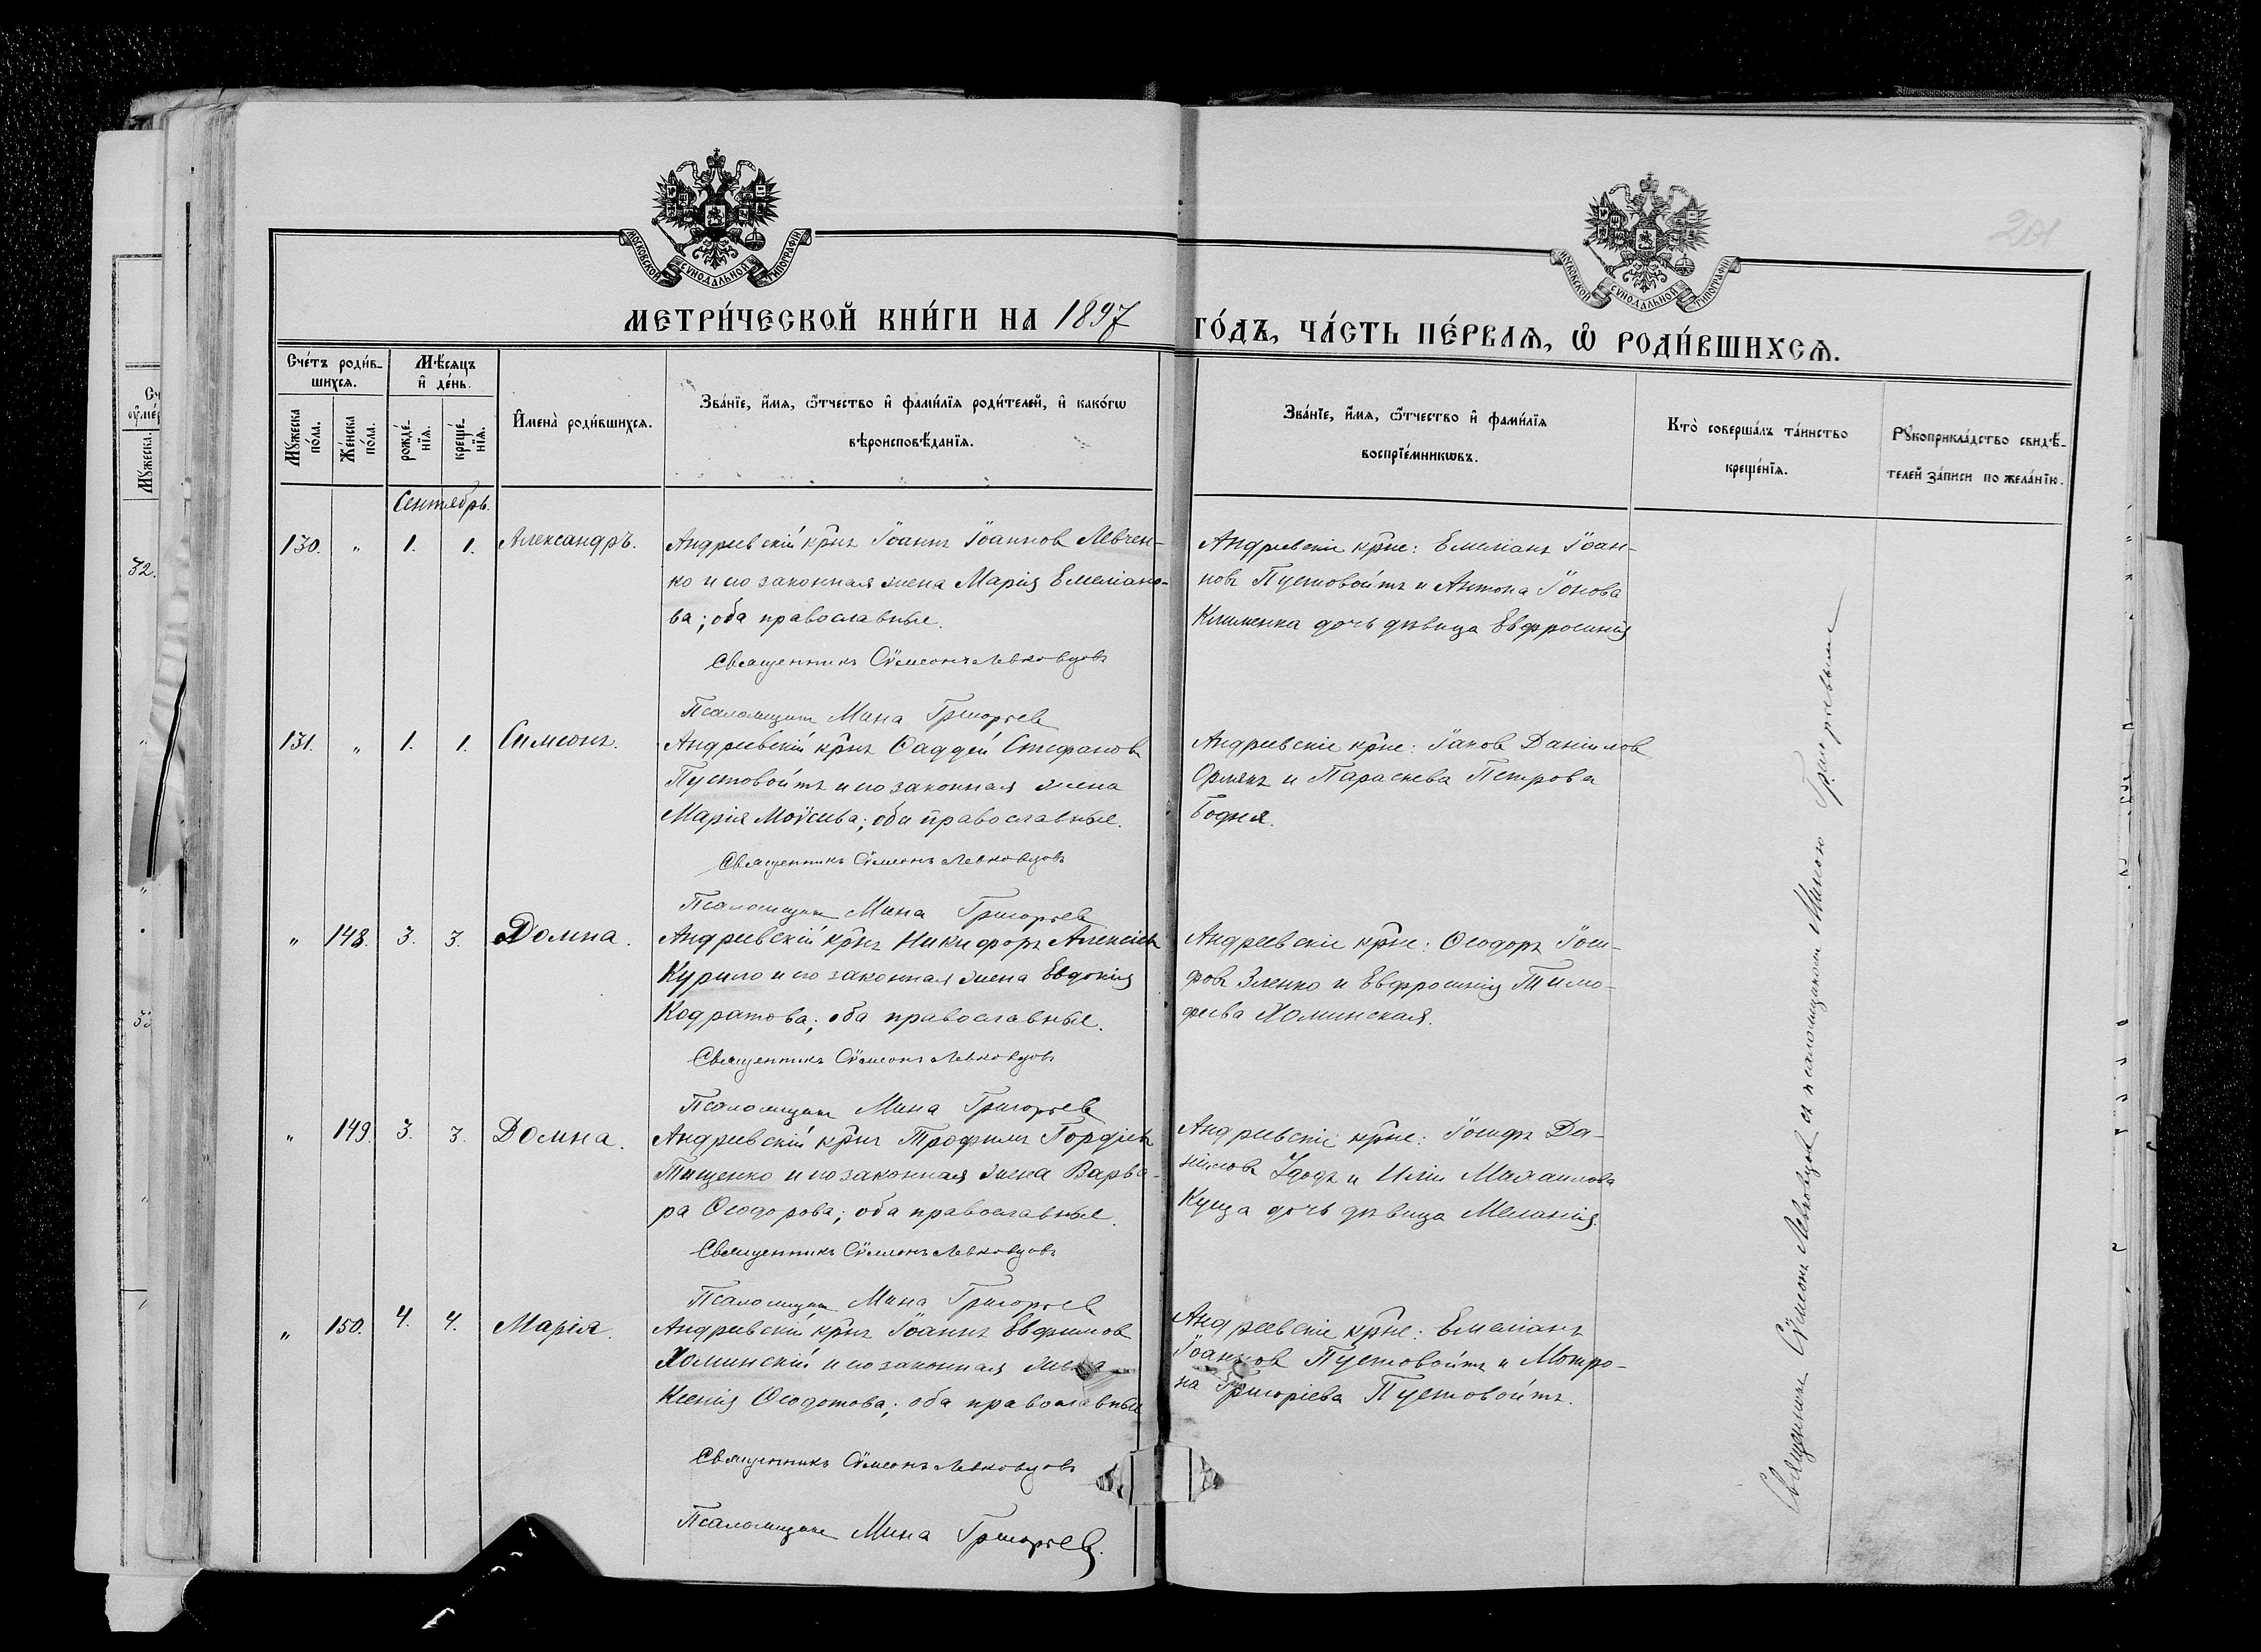 МОСКОВСКОЙ СУНОДАЛЬНОЙ ТИПОГРАФІИ
МОСКОВСКОЙ СУНОДАЛЬНОЙ ТИПОГРАФІИ
201
МЕТРИ́ЧЕСКОЙ КНИ́ГИ НА 1897 ГО́ДЪ, ЧА́СТЬ ПЕ́РВАѦ, Ѡ РОДИ́ВШИХСѦ.
Сче́тъ роди́в-
шихсѧ.
Мѣ́сѧцъ
и҆ де́нь.
Мꙋжеска
по́ла.
Же́нска
по́ла.
рожде́-
нїѧ.
креще́-
нїѧ.
И҆мена̀ роди́вшихсѧ.
Зва́нїе, и҆́мѧ, ѻ҆́тчество и҆ фами́лїѧ роди́телей, и҆ како́гѡ
вѣроисповѣ́данїѧ.
Зва́нїе, и҆́мѧ, ѻ҆́тчество и҆ фами́лїѧ
воспрїе́мникѡвъ.
Кто̀ соверша́лъ та́инство
креще́нїѧ.
Рꙋкоприкла́дство свидѣ́-
телей за́писи по жела́нїю.
Сентябрь.
130. " 1. 1. Александръ.
Андреевскій крнъ Іоаннъ Іоанновъ Левчен-
ко и его законная жена Марія Емеліано-
ва; оба православные.
Священникъ Сѵмеонъ Левковцовъ
Псаломщикъ Мина Григорьевъ
Андреевскіе крне: Емеліанъ Іоан-
новъ Пустовойтъ и Антона Іонова
Клименка дочь дѣвица Евфросинія
131. " 1. 1. Симеонъ.
Андреевскій крнъ Ѳаддей Стефановъ
Пустовойтъ и его законная жена
Марія Моѵсеева; оба православные.
Священникъ Сѵмеонъ Левковцовъ
Псаломщикъ Мина Григорьевъ
Андреевскіе крне: Іаковъ Даніиловъ
и Параскева Петрова
Бодня.
" 148. 3. 3. Домна.
Андреевскій крнъ Никифоръ Алексіевъ
Курило и его законная жена Евдокія
Кодратова; оба православные.
Священникъ Сѵмеонъ Левковцовъ
Псаломщикъ Мина Григорьевъ
Андреевскіе крне: Ѳеодоръ Іоси-
фовъ Зленко и Евфросинія Тимо-
феева Хоминская.
" 149. 3. 3. Домна.
Андреевскій крнъ Трофимъ Гордіевъ
Тищенко и его законная жена Варва-
ра Ѳеодорова; оба православные.
Священникъ Сѵмеонъ Левковцовъ
Псаломщикъ Мина Григорьевъ
Андреевскіе крне: Іосифъ Да-
ніиловъ Удодъ и Иліи Михаилова
Куща дочь дѣвица Меланія.
" 150. 4. 4. Марія.
Андреевскій крнъ Іоаннъ Евфимовъ
Хоминскій и его законная жена
Ксенія Ѳеодотова; оба православные
Священникъ Сѵмеонъ Левковцовъ
Псаломщикъ Мина Григорьевъ.
Андреевскіе крне: Емеліанъ
Іоанновъ Пустовойтъ и Мотро-
на Григоріева Пустовойтъ.
Священникъ Сѵмеонъ Левковцовъ съ псаломщикомъ Миною Григорьевымъ
Мꙋжеска.
32.